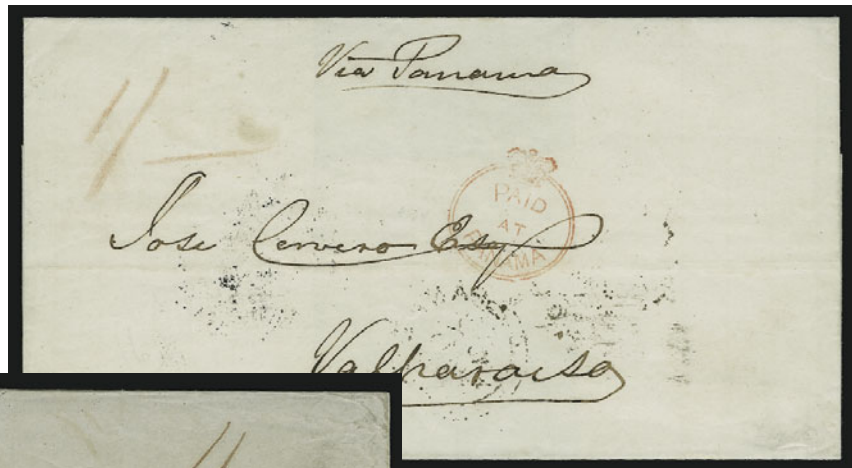 Via Panama
1/-
PAID
AT
PANAMA
Jose Cervero Esq
Valparaiso